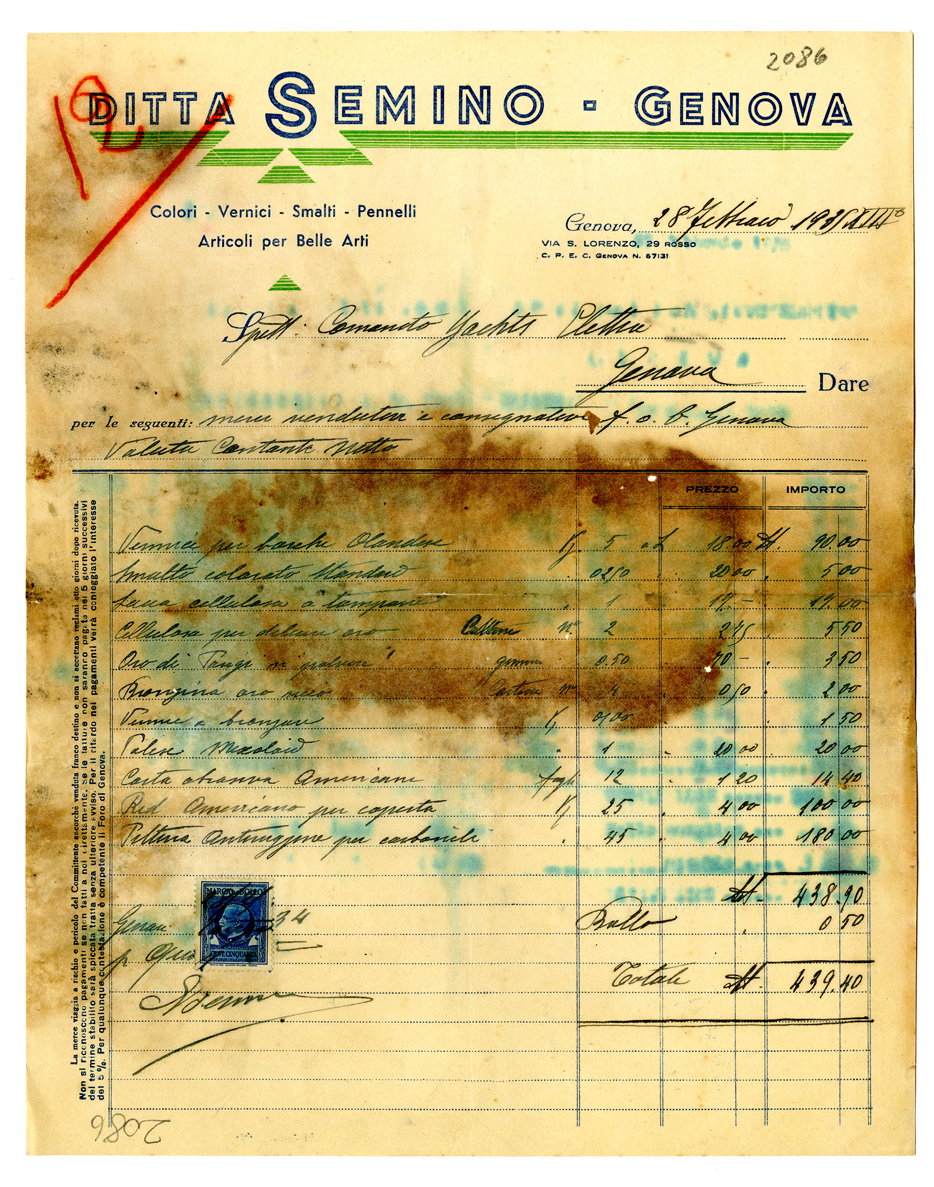 2086
12
DITTA SEMINO - GENOVA
Colori - Vernici - Smalti - Pennelli
Articoli per Belle Arti
Genova, 28 Febbraio 1935 XIII°
VIA S. LORENZO, 29 ROSSO
C. P. E. C. GENOVA N. 67131
Spett. Comando Yachts Elettra
Genova Dare
per le seguenti: merci vendutevi e consegnatevi f. o. b. Genova
Valuta Contante Netto
PREZZO IMPORTO
Vernice per barche Olandese Kg 5 a £ 18.00 £ 90.00
Smalto colorato Standard 0250 20 00 5 00
Lacca cellulosa a tampone 1 17 - 17.00
Cellulosa per oro N° 2 2 75 5 50
Oro di in polvere grammi 0.50 70 - 3 50
Bronzina oro ricco N° 4 0,50 2 00
Vernice a bronzare Kg 1 50
1 20 00 20 00
Carta Americane fogli 12 1 20 14 40
Red Americano per coperta Kg 25 4 00 100 00
Pittura Antiruggine per carbonili 45 4 00 180 00
£ 438.90
Bollo 0 50
Totale £ 439.40
MARCA DA BOLLO
CENT. CINQUANTA
Genova 34
p. Ditta
La merce viaggia a rischio e pericolo del Committente ancorchè venduta franco destino e non si accettano reclami otto giorni dopo ricevuta.
Non si riconoscono pagamenti se non fatti a noi direttamente, se le fatture non saranno pagate nei 5 giorni successivi
del termine stabilito sarà spiccata tratta senza ulteriore avviso. Per il ritardo nei pagamenti verrà conteggiato l'interesse
del 5 %. Per qualunque contestazione è competente il Foro di Genova.
2086